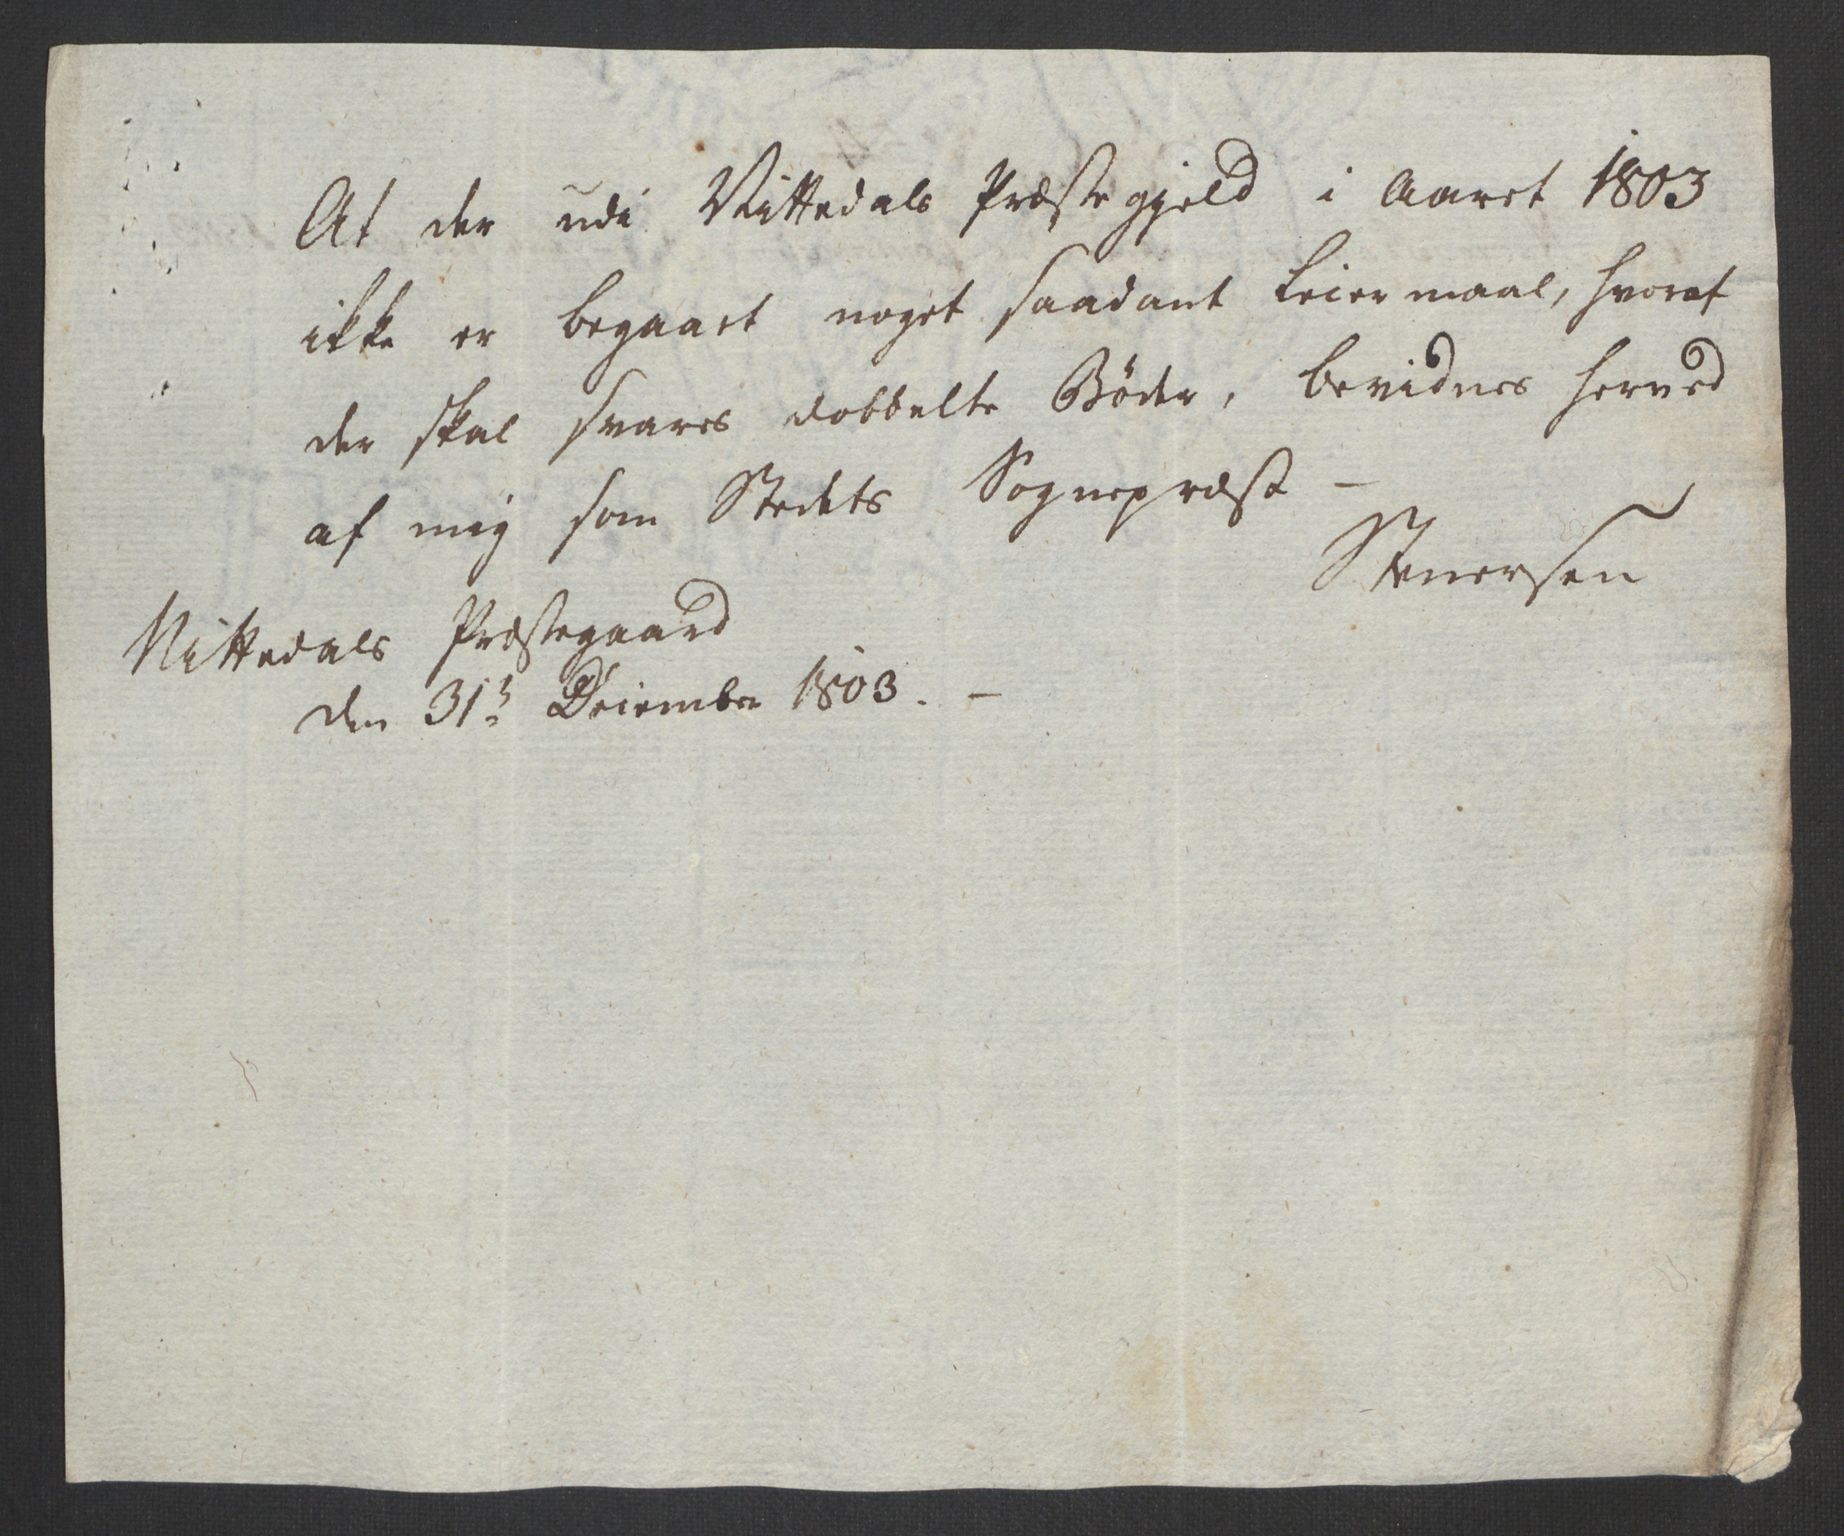 At der udi Nittedals Præstegjeld i Aaret 1803
ikke er begaaet noget saadant Leiermaal, hvoraf
der skal svares dobbelte Bøder, bevidnes herved
af mig som Stedets Sognepræst –
Stenersen
Nittedals Præstegaard
den 31t December 1803. –